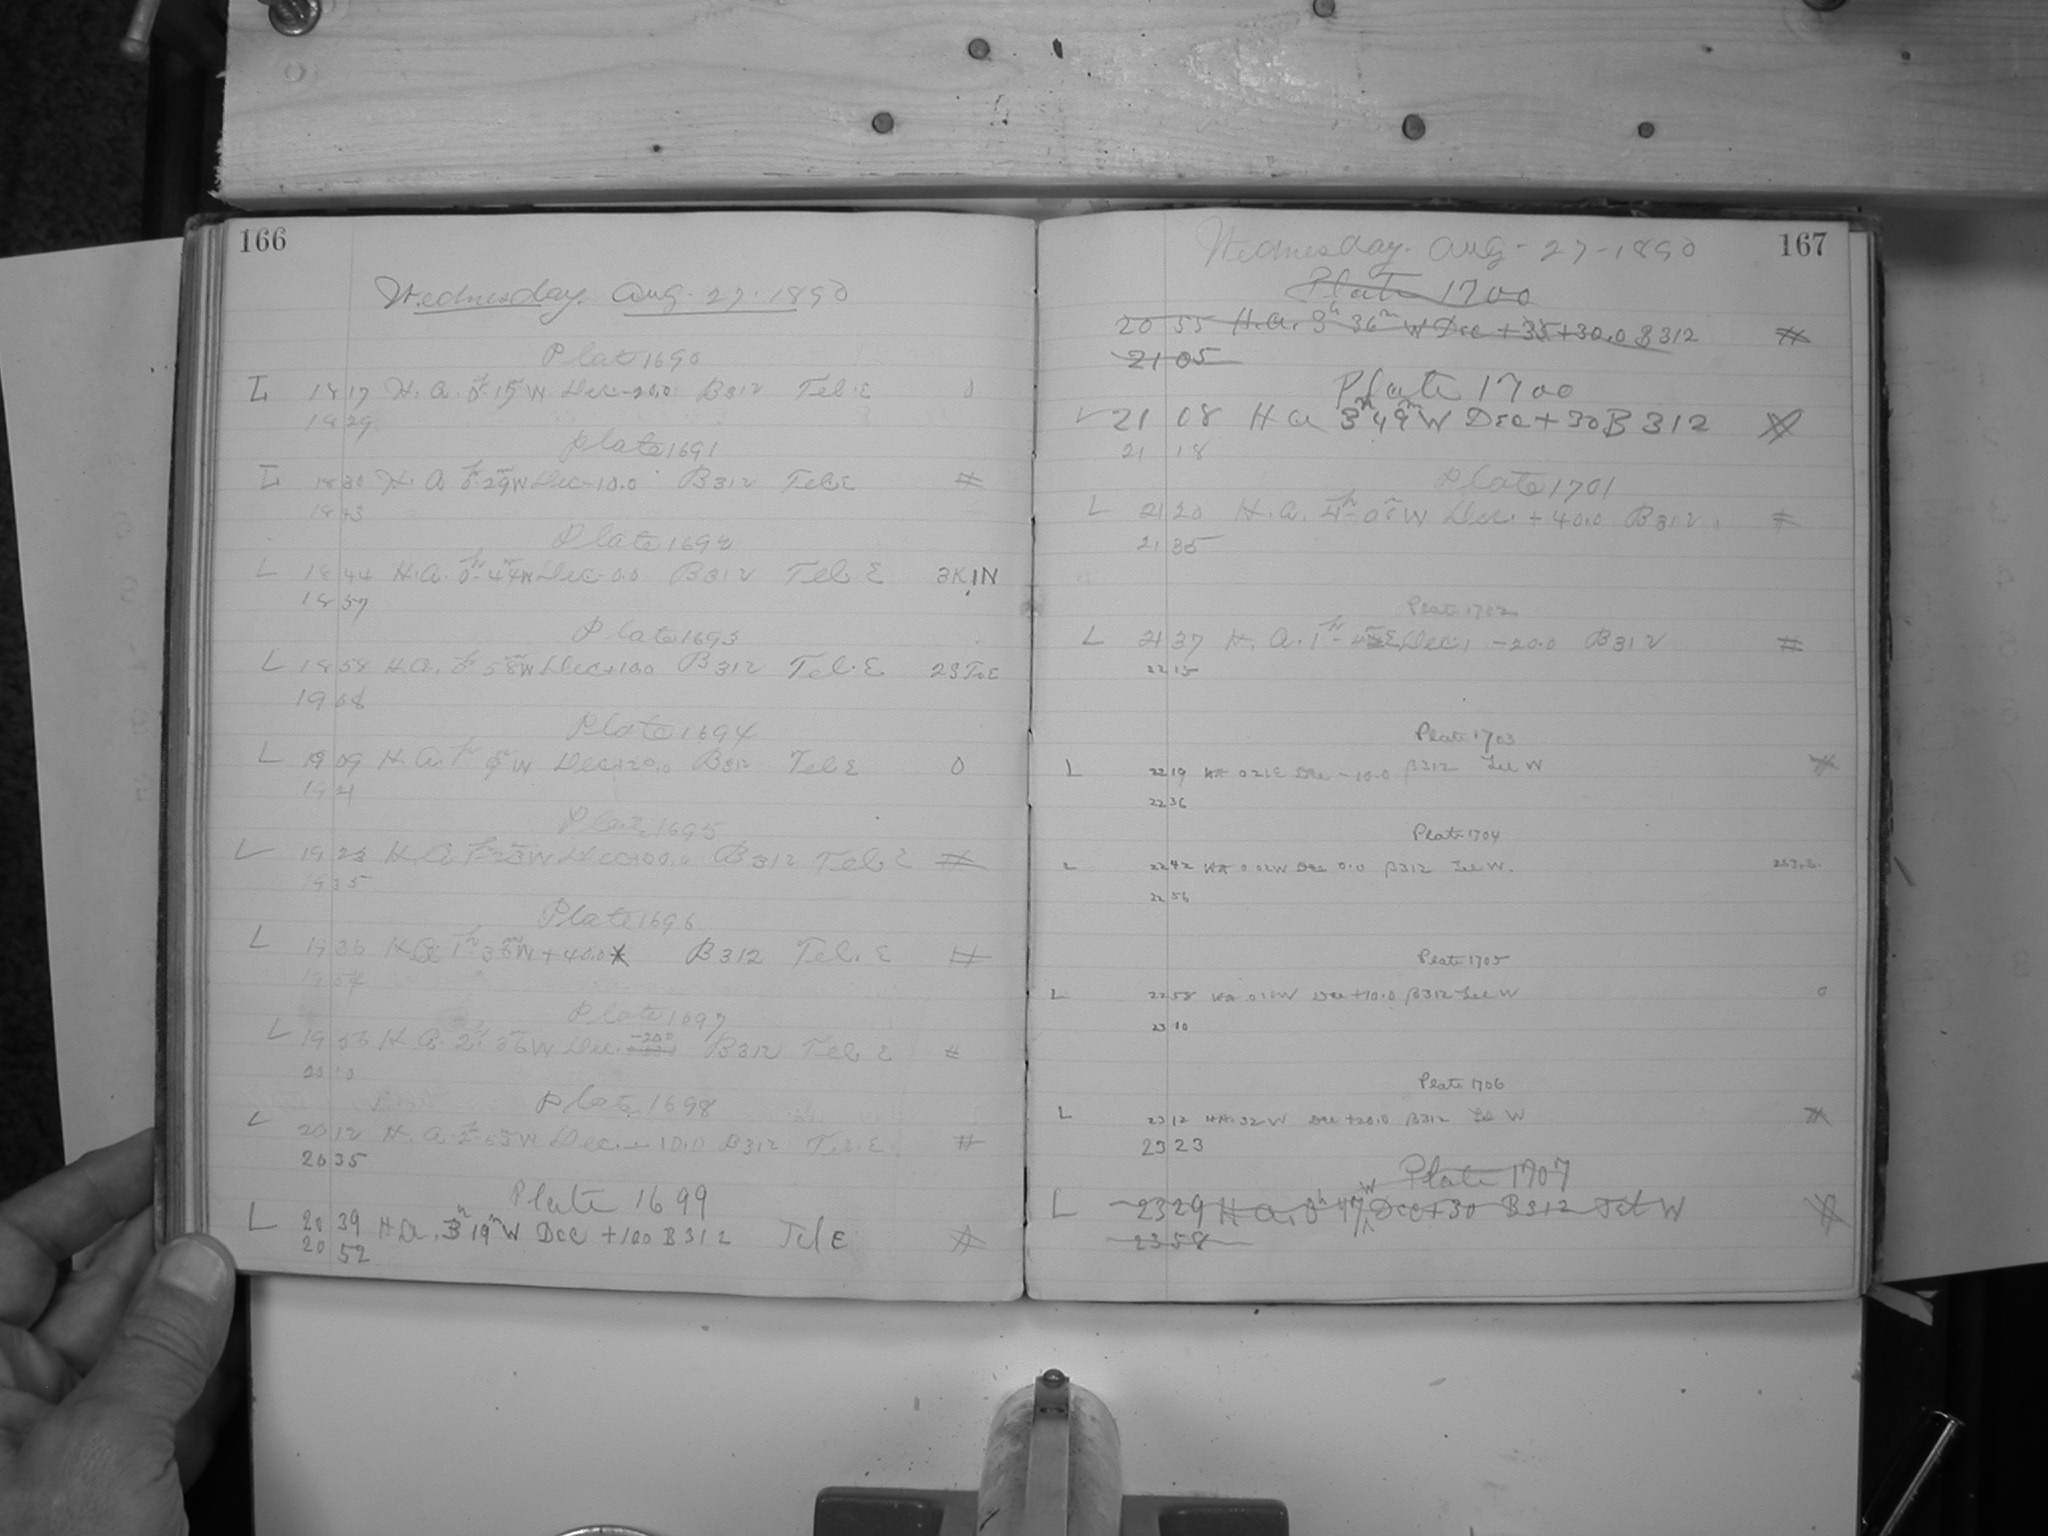 166
Wednesday. Aug. 27. 1890
Plate 1690
L 18 17 H. A. 0h 15m W. Dec -20.0 B312 Tel. E 0
18 29
Plate 1691
L 18 30 H. A 0h 29m W Dec -10.0 B 312 Tel. E #
18 43
Plate 1692
L 18 44 H. A. 0h 44m W Dec 0.0 B 312 Tel. E 3K1N
18 57
Plate 1693
L 18 58 H. A. 0h 58m W Dec +10.0 B 312 Tel. E
19 08
Plate 1694
L 19 09 H. A. 1h 9m W Dec +20.0 B312 Tel. E 0
19 21
Plate 1695
L 19 23 H. A 1h 23m W B 312 Tel. E #
19 35
Plate 1696
L 19 36 H. A. 1h 36m W +40.0 B 312 Tel. E #
19 54
Plate 1697
L 19 56 H. A. 2h 36m W Dec. -20.0 B312 Tel. E #
20 10
Plate 1698
L 20 12 H. A. 2h 53m W Dec. -10.0 B312 Tel. E #
20 35
Plate 1699
L 20 39 H A. 3h 19m W Dec +10.0 B 312 Tel E #
20 52
167
Wednesday. Aug - 27 - 1890
Plate 1700
20 55 H. A. 3h 36m W Dec +35 +30.0 B 312 #
21 05
Plate 1700
L 21 08 H A 3h 49m W Dec + 30 B 312 #
21 18
Plate 1701
L 21 20 H. A. 4h W Dec. + 40.0 B 312 #
21 35
Plate 1702
L 21 37 H. A. 1h E Dec. -20.0 B 312 #
22 15
Plate 1703
L 22 19 HA 0 21 E Dec -10.0 B312 Tel W #
22 36
Plate 1704
L 22 42 HA 0 02 W Dec 0.0 B312 Tel W.
22 56
Plate 1705
L 22 58 HA 0 18 W Dec +10.0 B312 Tel W 0
23 10
Plate 1706
L 23 12 HA. 32 W Dec +20.0 B312 Tel W #
23 23
Plate 1707
L 23 29 H A. 0h 47m W Dec +30 B312 Tel W #
23 58